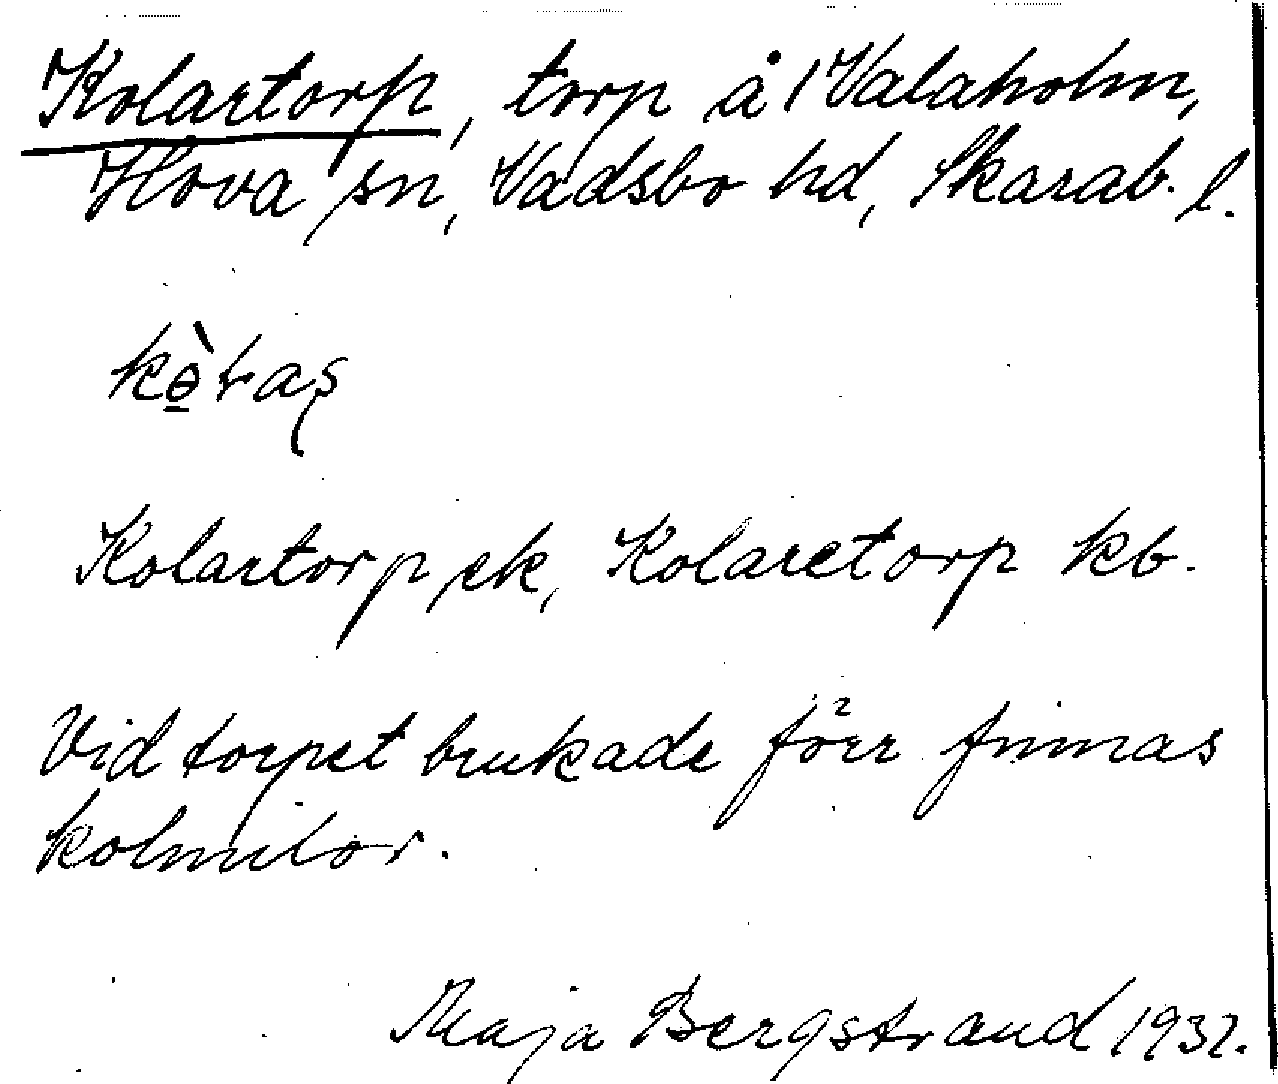 Kolartorp, torp å Valaholm,
Hova sn, Vadsbo hd, Skarab. l.
Kolartorp ek, Kolaretorp kb.
Vid torpet brukade förr finnas
kolmilor.
Maja Bergstrand 1932.